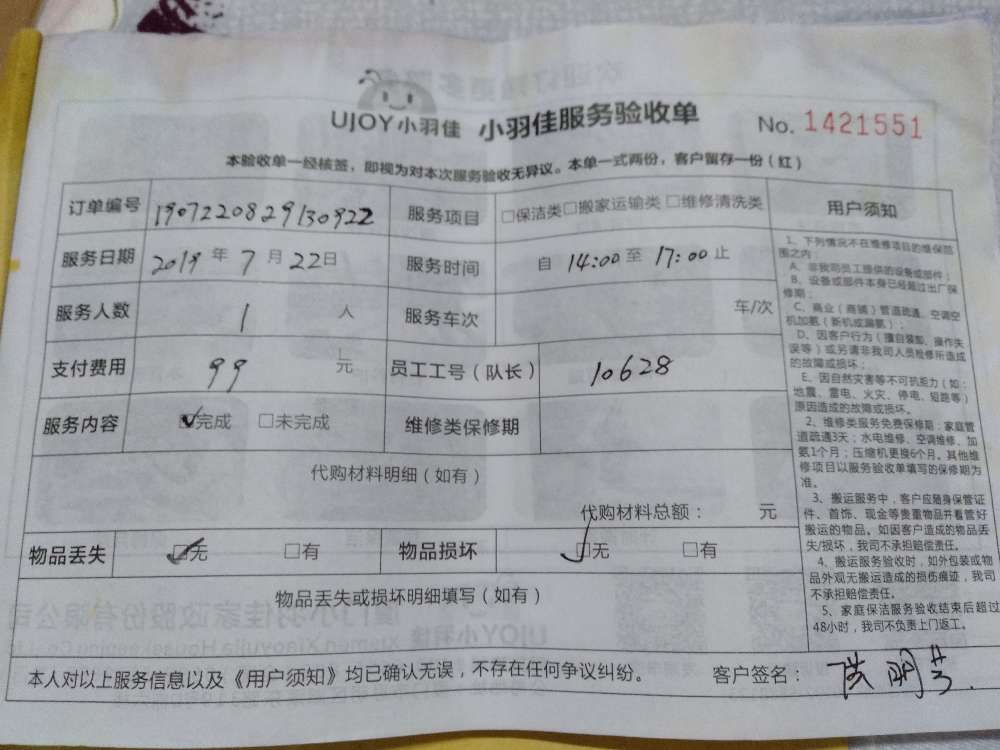 UJOY小羽佳 小羽佳服务验收单 No. 1421551
本验收单一经核签，即视为对本次服务验收无异议。本单一式两份，客户留存一份（红）
订单编号 190722082913092​2 服务项目 □保洁类□搬家运输类□维修清洗类
服务日期 2019年7月22日 服务时间 自 14:00至 17:00止
服务人数 1 人 服务车次 车/次
支付费用 99 元 员工工号（队长） 10628
服务内容 ☑完成 □未完成 维修类保修期
代购材料明细（如有）
代购材料总额： 元
物品丢失 ☑无 □有 物品损坏 ☑无 □有
物品丢失或损坏明细填写（如有）
用户须知
1、下列情况不在维修项目的维保范
围之内：
A、非我司员工提供的设备或部件；
B、设备或部件本身已经超过出厂保
修期；
C、商业（商铺）管道疏通、空调空
机加氨（新机或漏氨）；
D、因客户行为（擅自装卸、操作失
误等）或另请非我司人员检修所造成
的故障或损坏；
E、因自然灾害等不可抗能力（如：
地震、雷电、火灾、停电、短路等）
原因造成的故障或损坏。
2、维修类服务免费保修期：家庭管
道疏通3天；水电维修、空调维修、加
氨1个月；压缩机更换6个月。其他维
修项目以服务验收单填写的保修期为
准。
3、搬运服务中，客户应随身保管证
件、首饰、现金等贵重物品并看管好
搬运的物品。如因客户造成的物品丢
失/损坏，我司不承担赔偿责任。
4、搬运服务验收时，如外包装或物
品外观无搬运造成的损伤痕迹，我司
不承担赔偿责任。
5、家庭保洁服务验收结束后超过
48小时，我司不负责上门返工。
本人对以上服务信息以及《用户须知》均已确认无误，不存在任何争议纠纷。 客户签名：